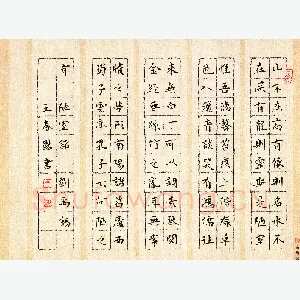 山不在高有仙則名水不
在深有龍則靈斯是陋室
惟吾德馨苔痕上階綠草
色入簾青談笑有鴻儒往
來無白丁可以調素琴閱
金經無絲竹之亂耳無案
牘之勞形南陽諸葛廬西
蜀子雲亭孔子云何陋之
有 陋室銘 劉禹錫
王春 書